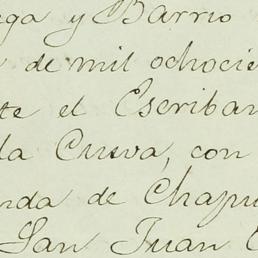 ega y Barrio
de mil ochocie
te el Escriban
la Cueva, con
nda de Chapu
San Juan